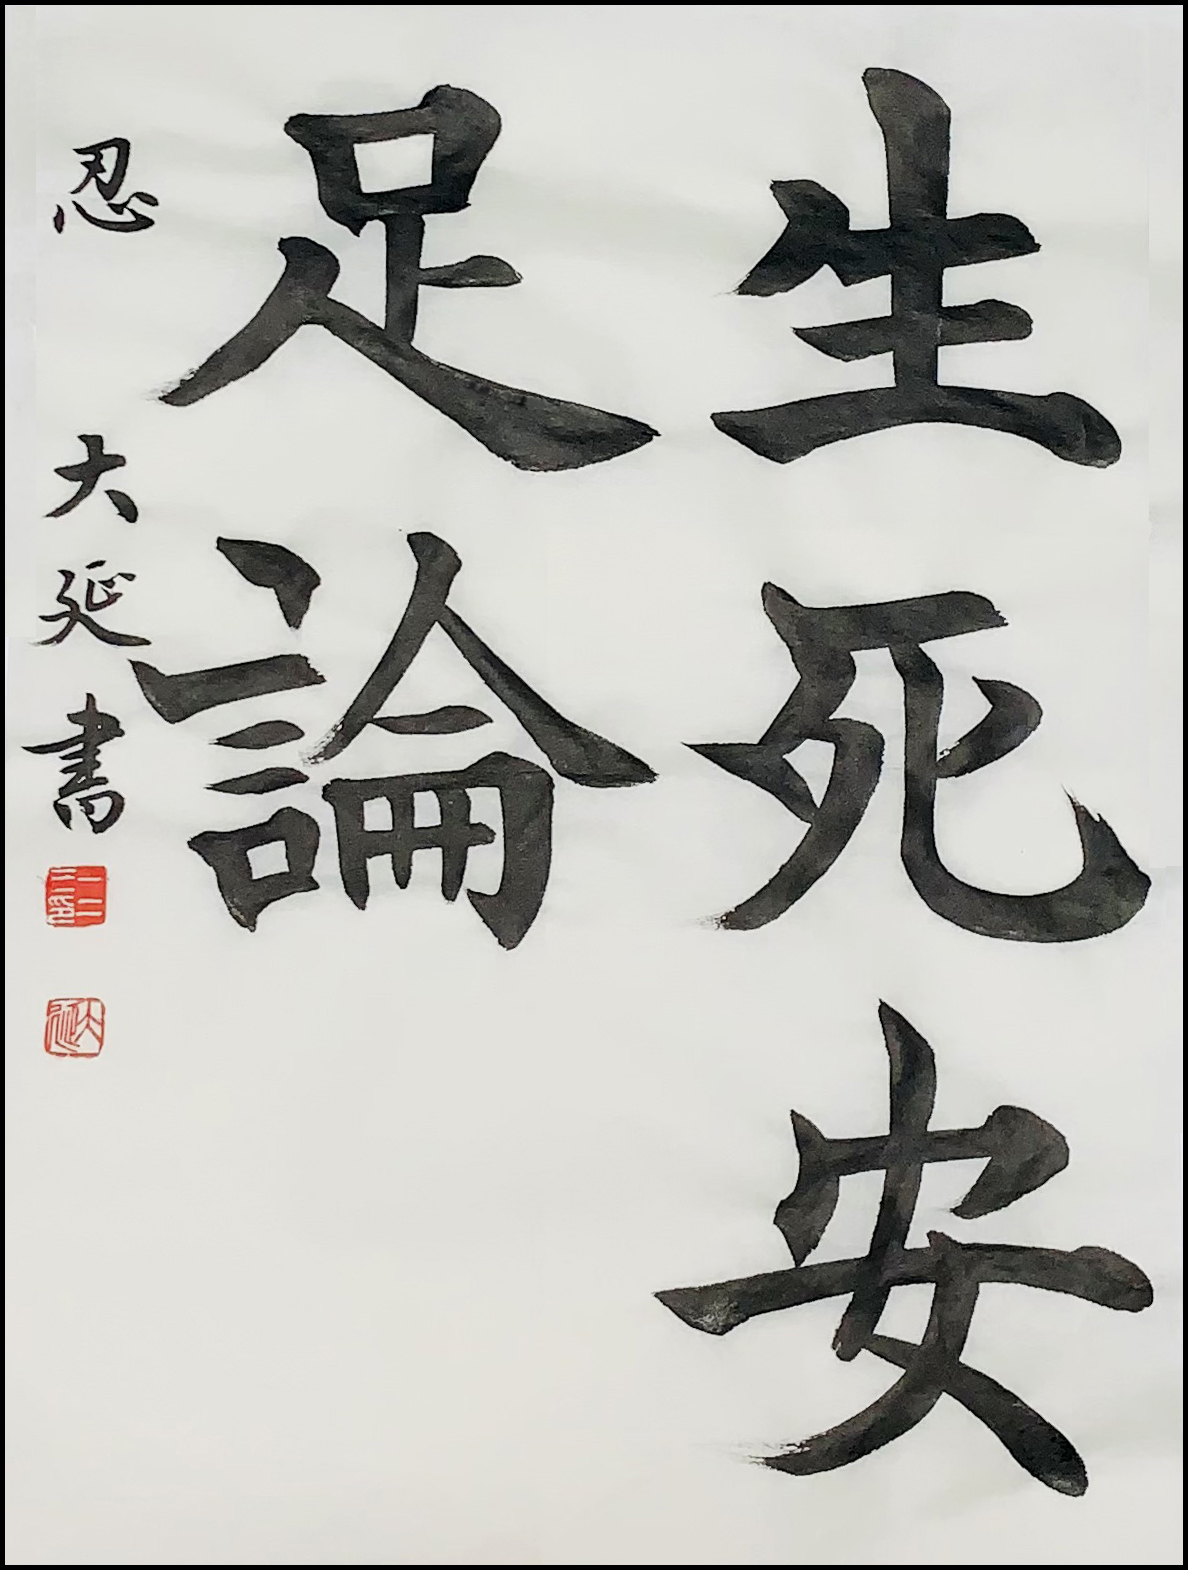 生死安
足論
忍 大延書